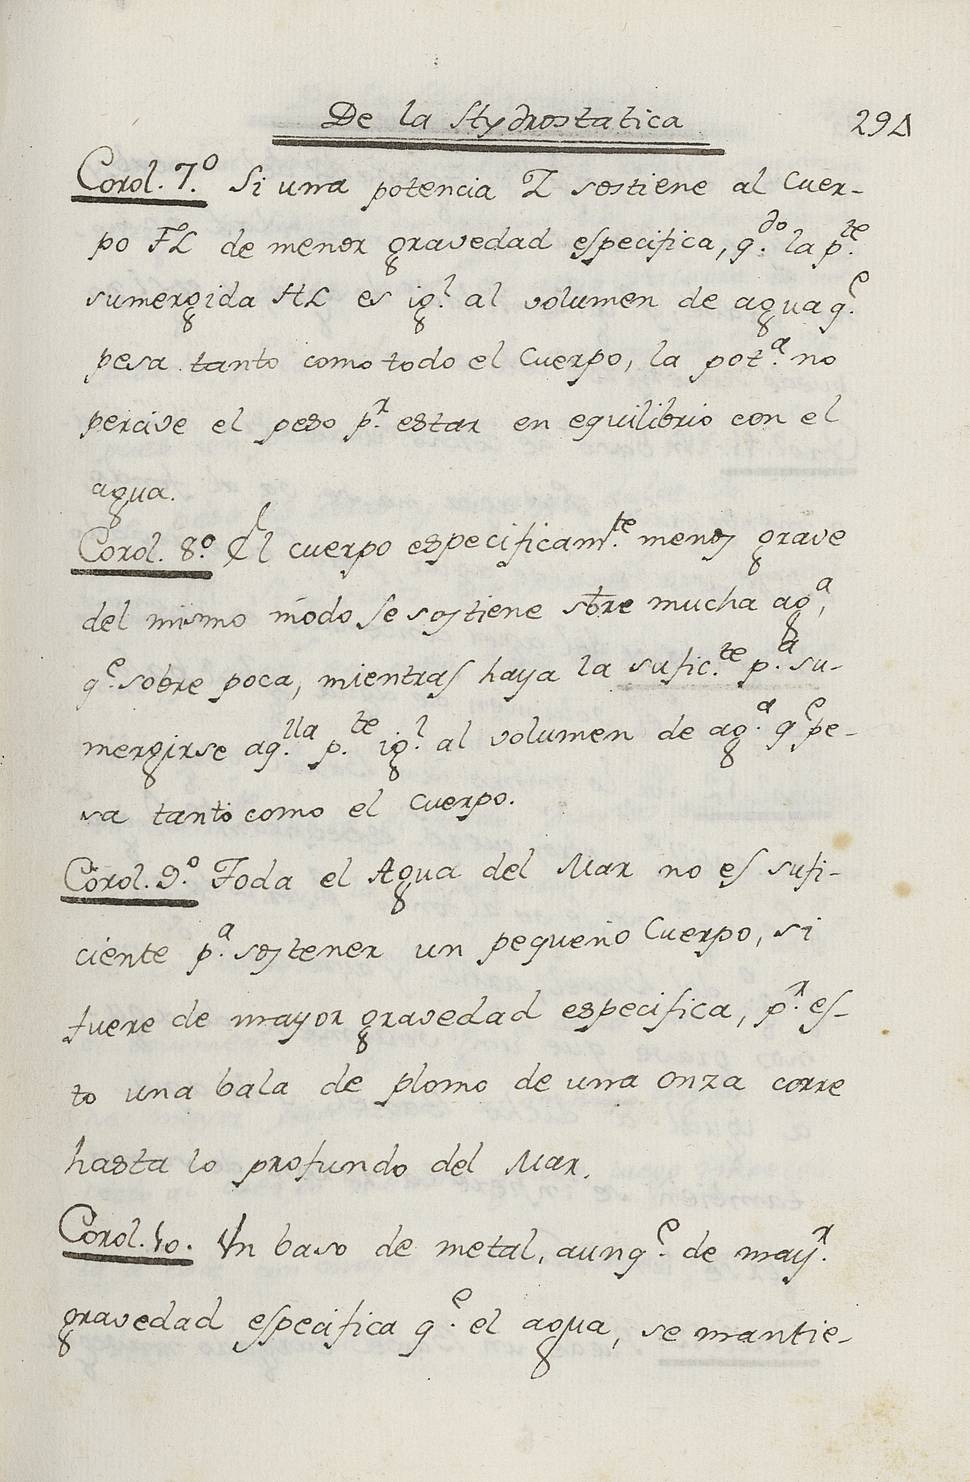 De la Hydrostatica 294
Corol. 7.º Si una potencia Z sostiene al Cuer-
po FL de menor gravedad especifica, q.do la p.te
sumergida HL es ig.l al volumen de agua q.e
pesa tanto como todo el Cuerpo, la pot.a no
percive el peso p.r estar en equilibrio con el
agua.
Corol. 8.º El cuerpo especificam.te menos grave
del mismo modo se sostiene sbre mucha ag.a,
q.e sobre poca, mientras haya la sufic.te p.a su-
mergirse aq.lla p.te ig.l al volumen de ag.a q.e pe-
sa tanto como el Cuerpo.
Corol. 9.º Toda el Agua del Mar no es sufi-
ciente p.a sostener un pequeño Cuerpo, si
fuere de mayor gravedad especifica, p.r es-
to una bala de plomo de una onza corre
hasta lo profundo del Mar.
Corol. 10. Un baso de metal, aunq.e de may.r
gravedad especifica q.e el agua, se mantie-